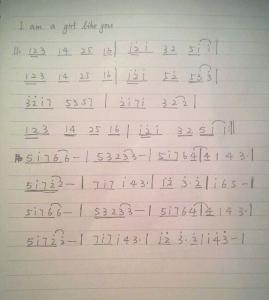 I am a girl like you
||: 123 14 25 16 | i̇2̇i̇ 32 5i̇ i̇ |
123 14 25 16 | i̇2̇i̇ 52̇ 53̇ 3̇ |
3̇2̇i̇7 5357 | 2̇i̇7i̇ 32̇2̇ |
123 14 25 16 | i̇2̇i̇ 32 5i̇ i̇ :||
5i̇766- | 53233- | 5i̇764 | 4143· |
5i̇72̇2̇- | 7i̇7 i̇43· | i̇2̇ 3̇·2̇ | i̇65- |
5i̇766- | 53233- | 5i̇764 | 4143· |
5i̇72̇2̇- | 7i̇7i̇43· | i̇2̇ 3̇·2̇ | i̇43- |